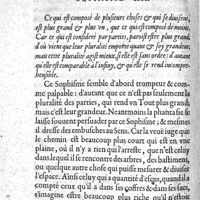 Ce qui est composé de plusieurs choses & qui se divisent,
est plus grand & plus un, que ce qui est composé de moins.
Car ce qui est consideré par parties, paroist estre plus grand
d'où vient que leur pluralité emporte quant & soy grandeur,
mais cette pluralité agist mieux, si elle est sans ordre: d'autant
qu'elle est comparable à l'infiny, & qu'elle se rend incompre-
hensible.
Ce Sophisme semble d'abord trompeur & com-
me palpable: d'autant que ce n'est pas seulement la
pluralité des parties, qui rend un Tout plus grand;
mais c'est leur grandeur. Neantmoins la phantasie se
laisse souvent persuader par ce Sophisme, & mesmes
il dresse des embusches au Sens. Car la veuë iuge que
le chemin est beaucoup plus court qui est en une
plaine, où il n'y a rien qui l'arreste, que n'est celuy
dans lequel il se rencontre des arbres, des bastimens,
ou quelque autre chose qui puisse mesurer & diviser
l'espace. Ainsi celuy qui a quantité d'escus, quand il a
compté ceux qu'il a dans ses coffres & dans ses sacs,
s'imagine estre beaucoup plus riche qu'il n'estoit